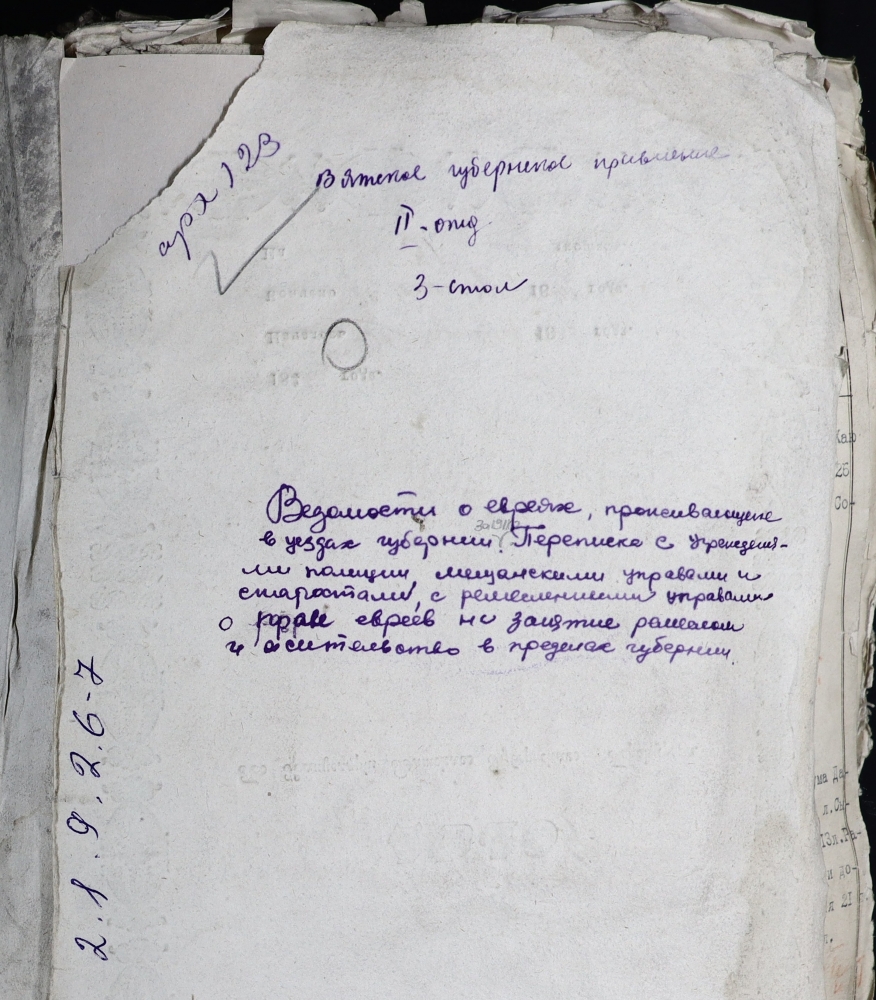 арх 123
Вятское губернское правление
II-отд
3-стол
Ведомости о евреях, проживающих
в уездах губернии. Переписка с учреждени-
за 1911 г.
ми полиции, мещанскими управами и
старостами, с ремесленными управами
о праве евреев на занятие ремеслом
и жительство в пределах губернии.
2.1.9.2.6-7
Као
25
Со-
ма Да-
л.Сы-
13л.Ра-
и до-
я 21